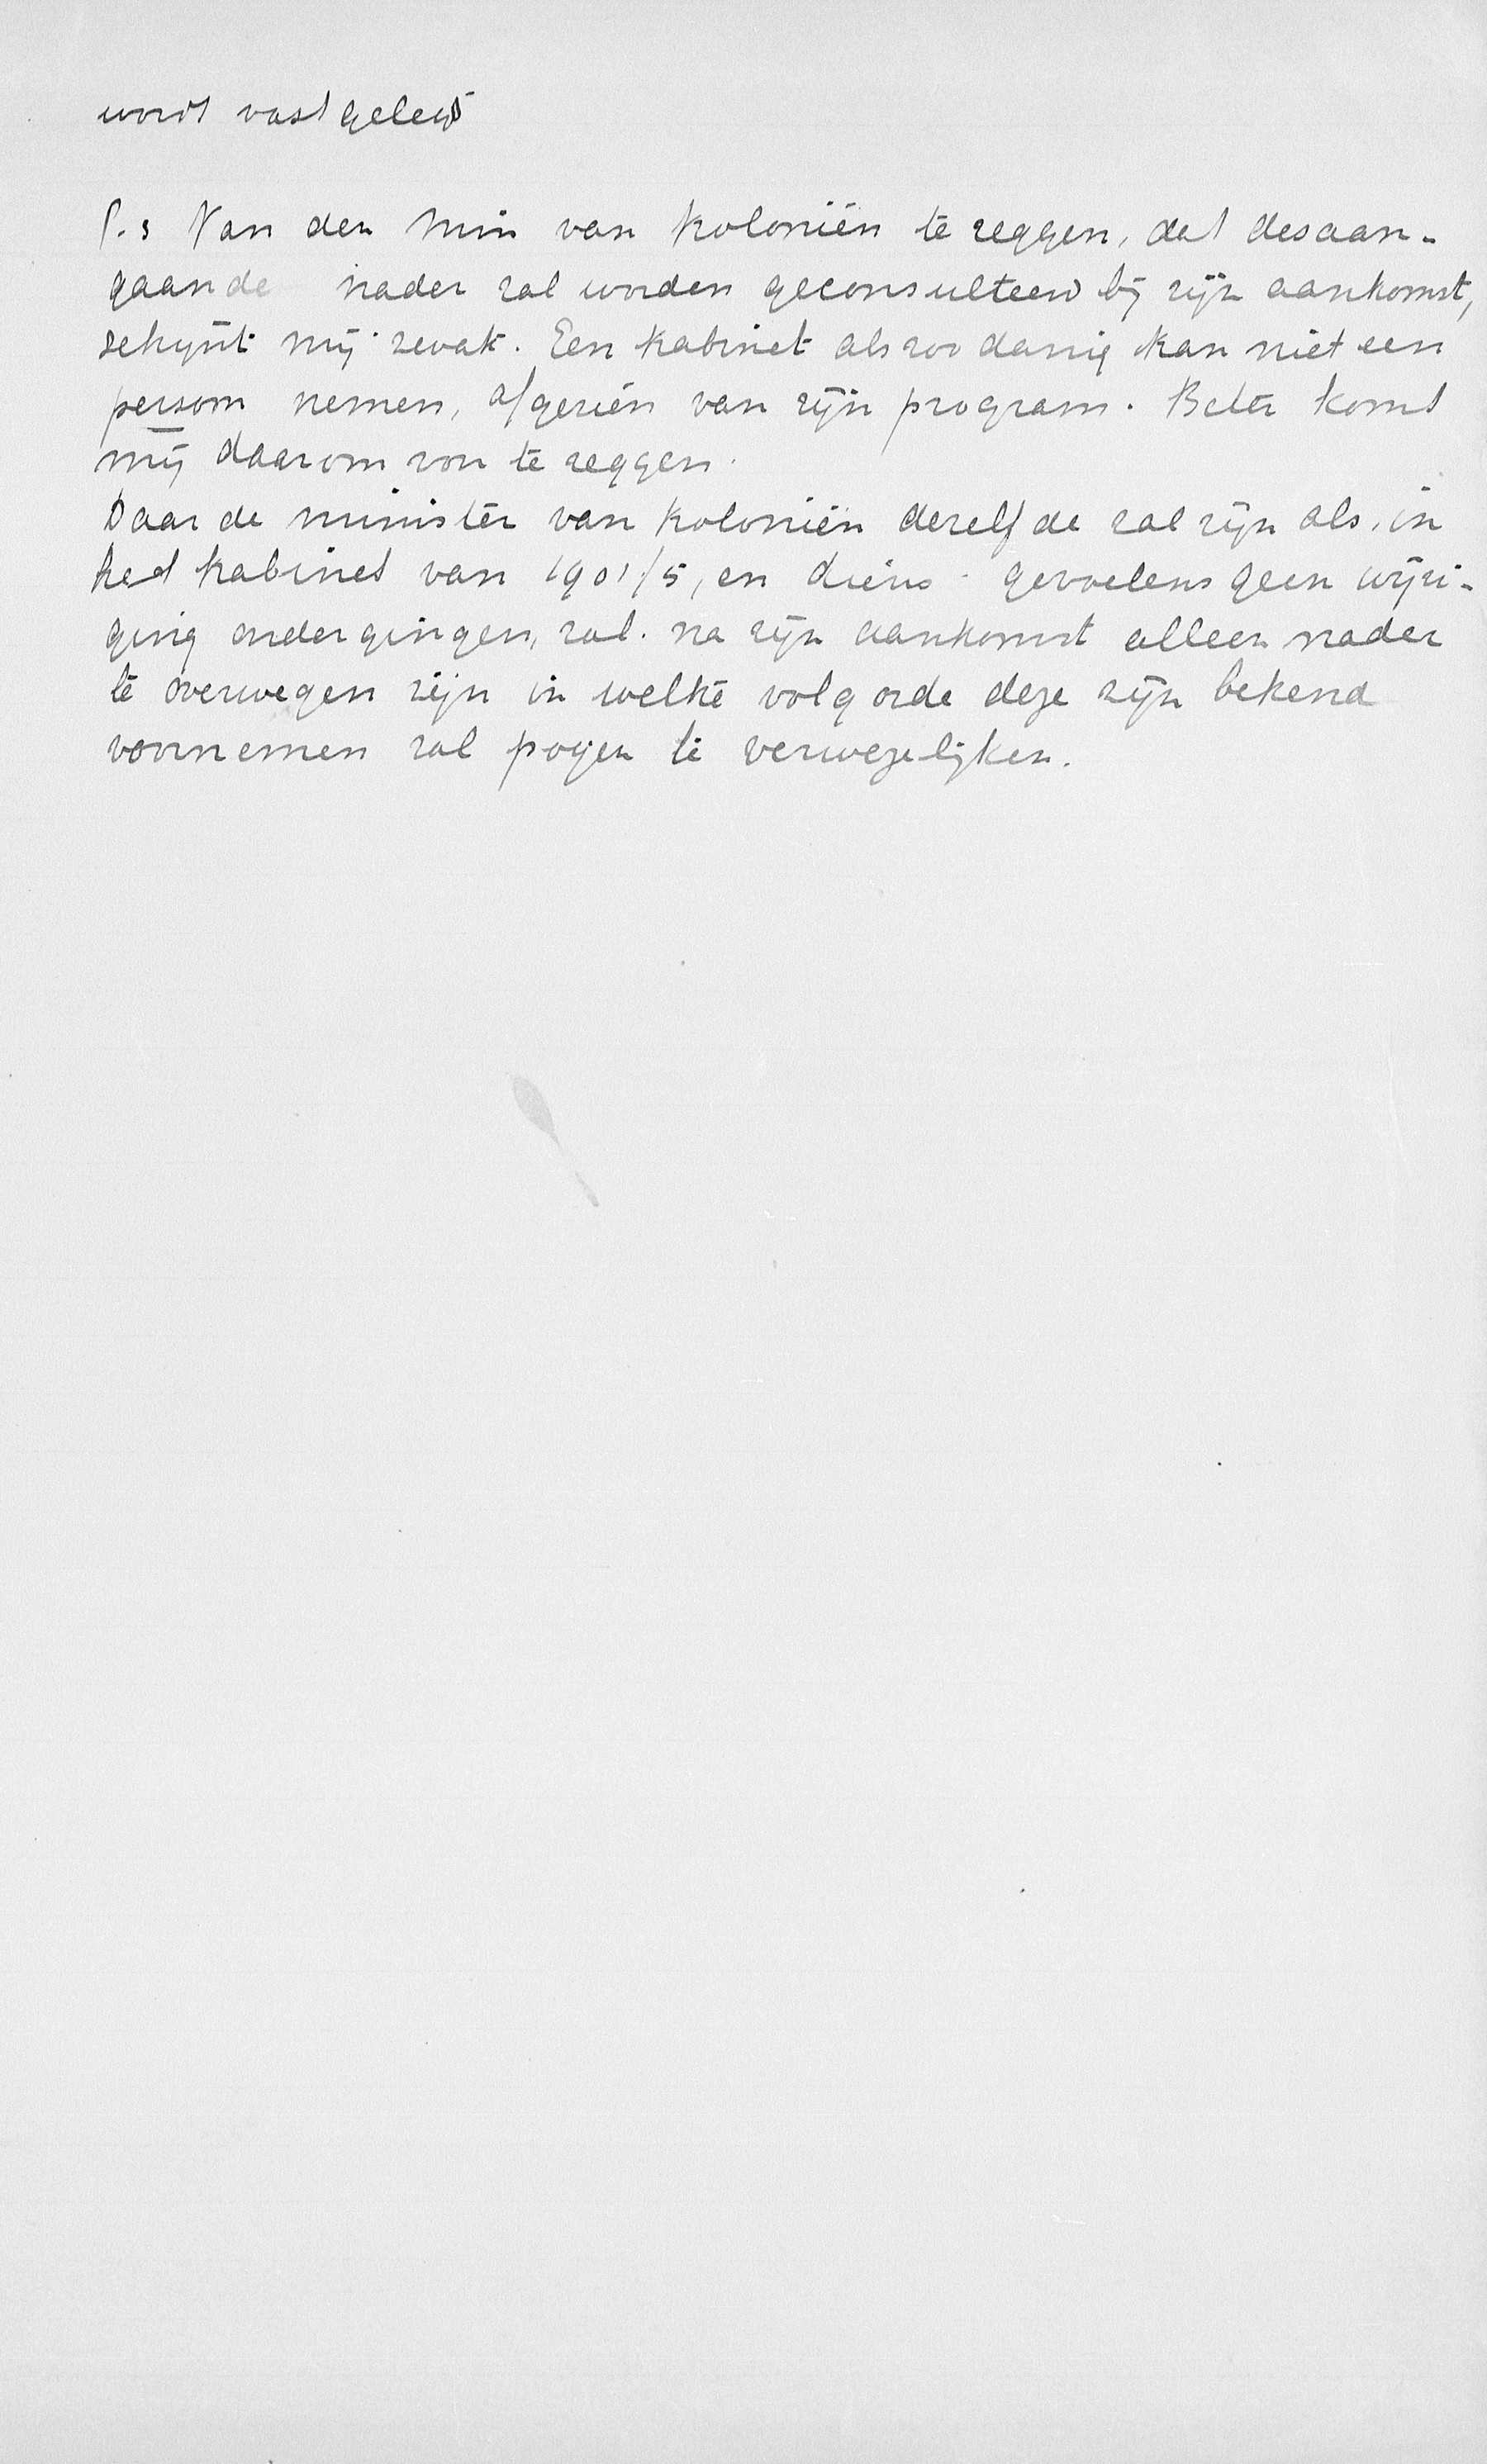 wordt vastgelegd
P.s Van den Min van Koloniën te zeggen, dat desaan-
gaande nader zal worden geconsulteerd bij zijn aankomst,
schijnt mij zwak. Een kabinet als zoodanig kan niet een
persoon nemen, afgezien van zijn program. Beter komt
mij daarom voor te zeggen.
Daar de minister van Koloniën dezelfde zal zijn als in
het kabinet van 1901/5, en diens gevoelens geen wijzi-
ging ondergingen, zal na zijn aankomst alleen nader
te overwegen zijn in welke volgorde deze zijn bekend
voornemen zal pogen te verwezelijken.